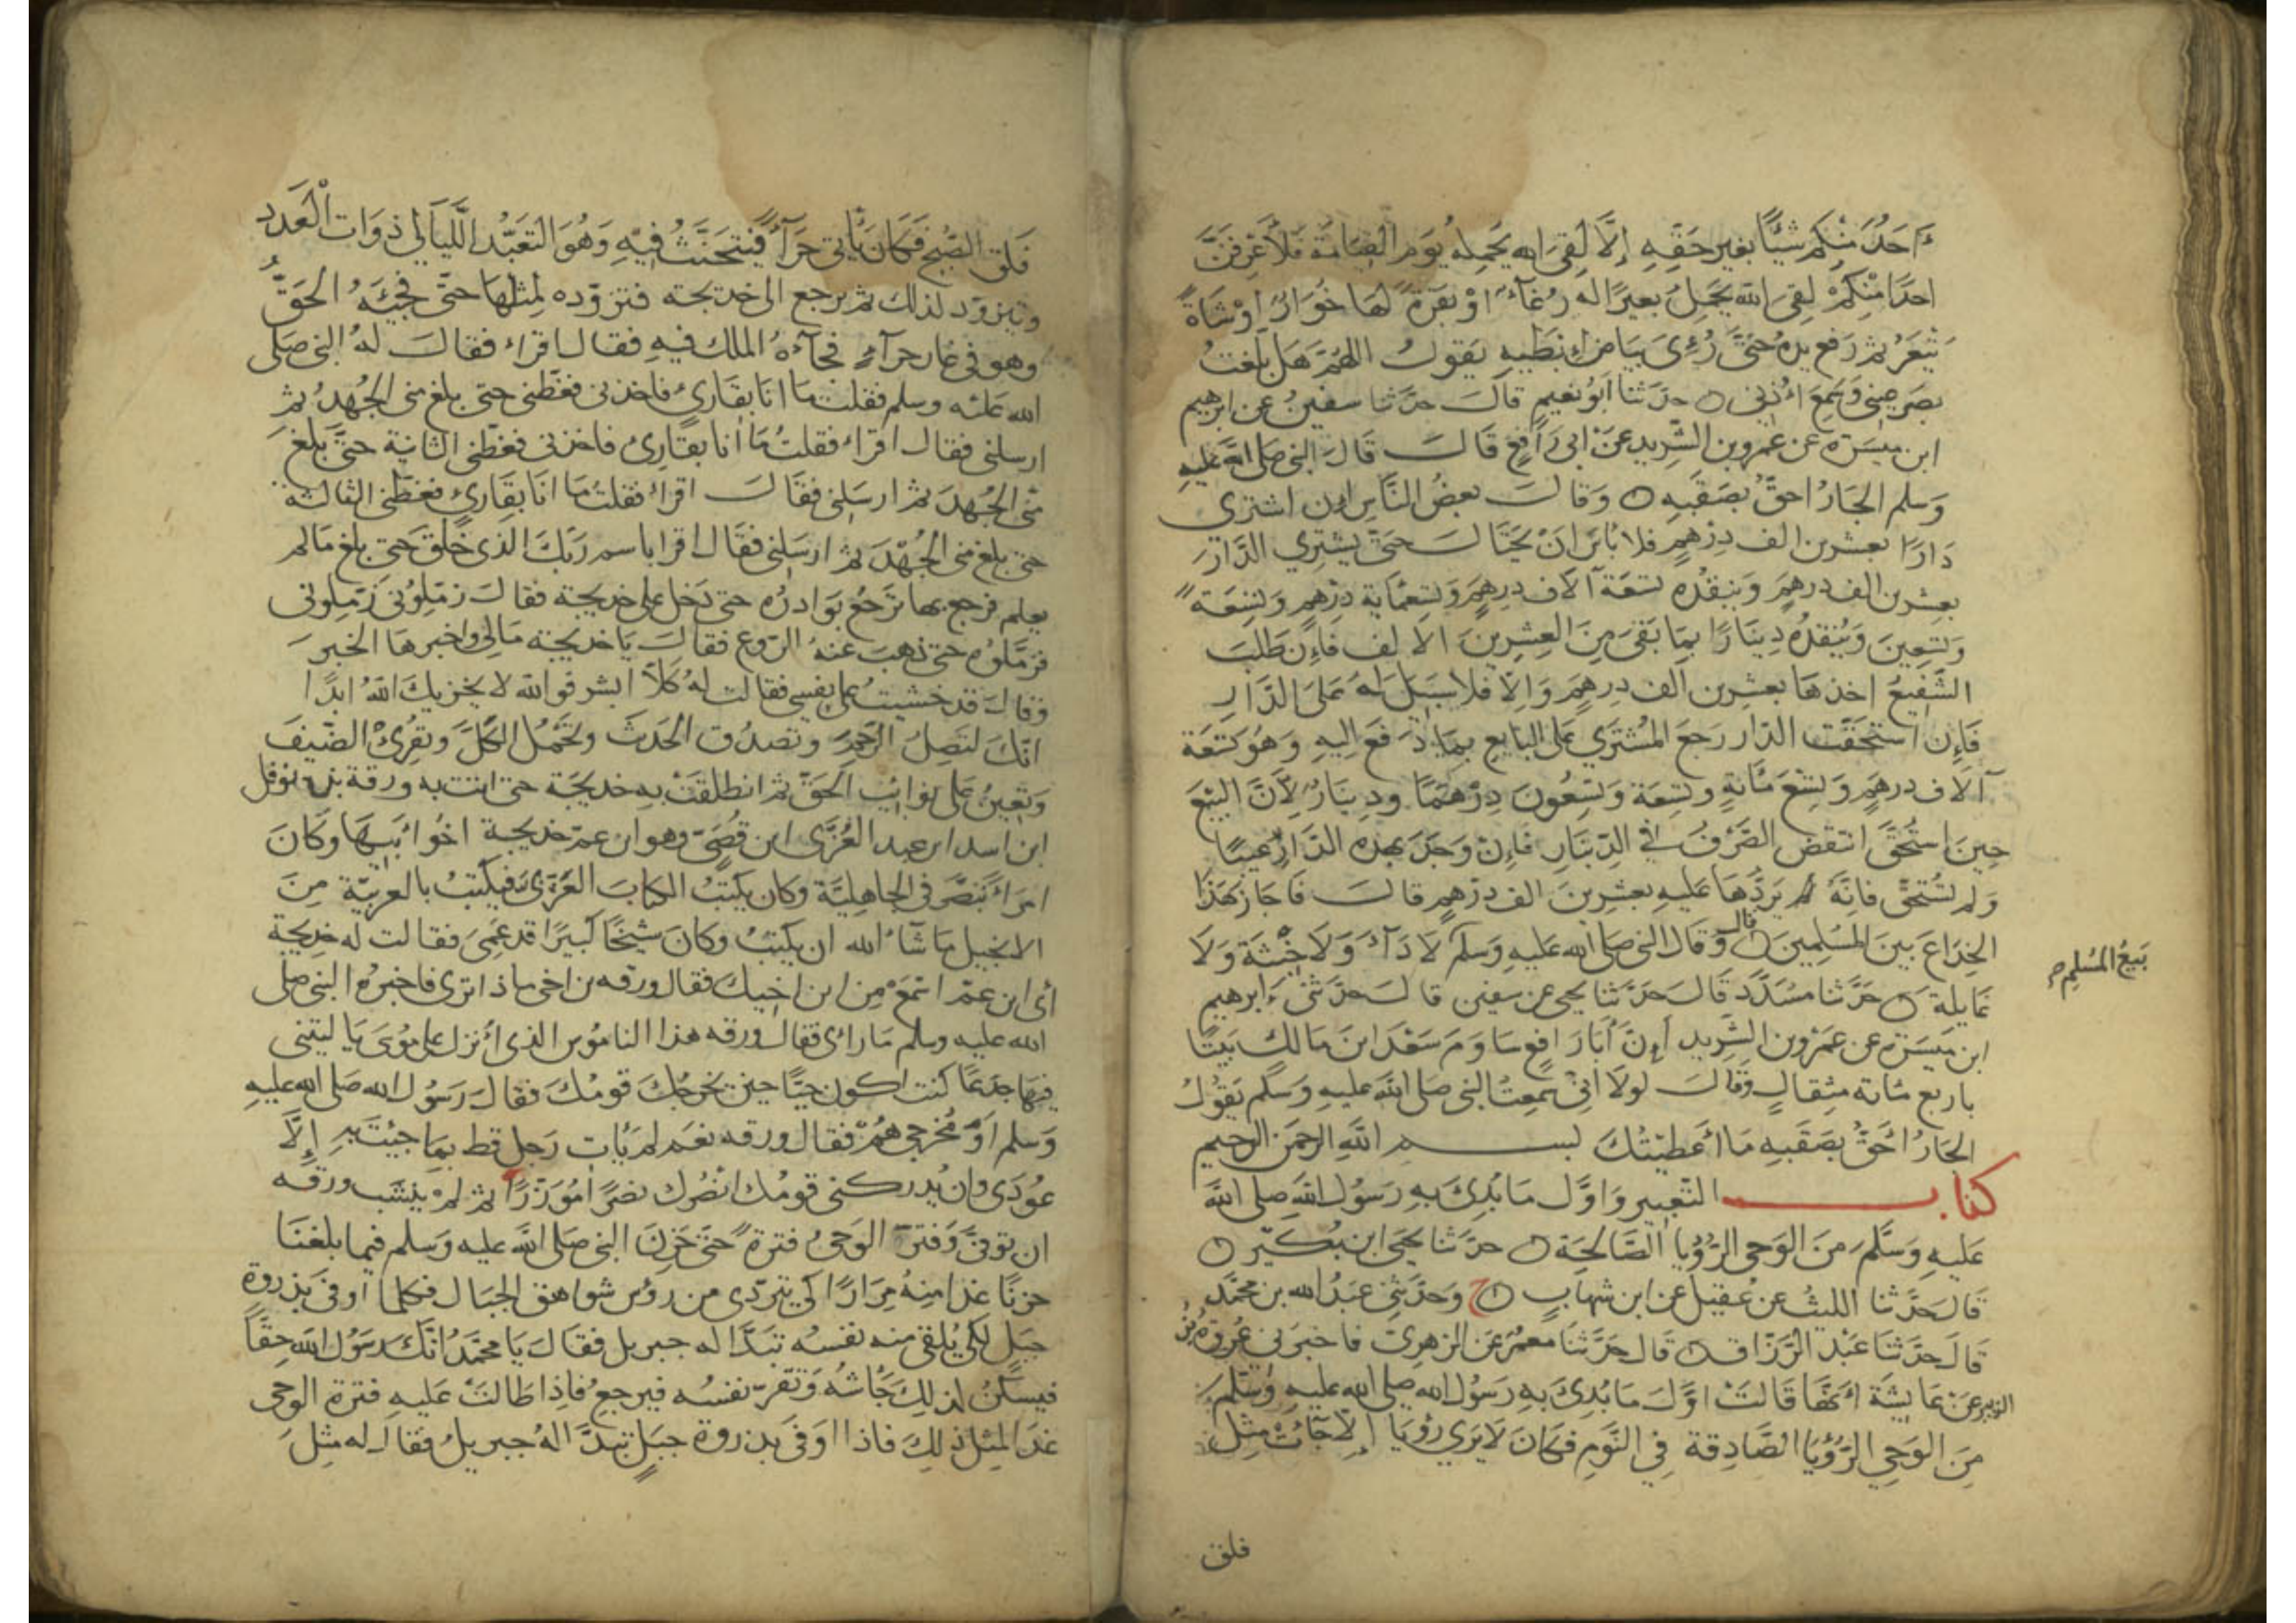 ءَاحَدُ مِنْكم شيْئًا بغير حَقِّهِ إلَّا لَقِىَ الله يَحْمِلُه يُوم القِيَامَة فَلَأَعْرِفَنَّ
احدًا مِنْكُمْ لَقِىَ الله يَحْمِلُ بعيرًا له رُغَآءٌ اوْ بَقَرَةً لهَا خُوَارٌ اوْ شَاةً
تَيْعَرُ ثم رَفع يدهُ حَتَّى رُئِىَ بَيَاض اِبْطَيْهِ يَقول اللهُمّ هَل بَلّغتُ
بصَرَ عينى وَسَمِعَ اُذُنى ○ حدّثنا أبُو نعيم قالَ حدّثنا سفينُ عن ابرهيم
ابن ميسرة عن عمرو بن الشّريد عَنْ ابى رَافِعٍ قَالَ قَالَ النبى صَلى الله عليه
وَسلم الجَارُ احقُّ بصَقَبِهِ ○ وَقالَ بعضُ النَّاسِ إن اشترى
دَارًا بعشرين الف دِرْهمٍ فلا بَأسَ انْ يَحتَالَ حَتىَّ يشترِي الدَّارَ
بعشرين الف درهمٍ وَيَنقُدَه تسعَة آلَاف درهمٍ وَتسْعمَاية دِرْهَمٍ وَتسْعَةً
وَتسْعِينَ وَيَنقدُه دِينَارًا بِمَا بَقىَ مِنَ العِشْرِينَ الالف فَإن طَلَبَ
الشَّفِيعُ اخذهَا بعشرين الف درهمٍ وَإلّا فلا سبيل لَهُ عَلى الدّارِ
فَإن استُحقّت الدّار رَجعَ المُشتَرِي عَلى البايع بمَا دَفعَ إليهِ وَهُو تسعَة
آلَاف درهمٍ وَتسْع مَائةٍ وتسعَة وَتسْعُونَ دِرْهَمًا ودِينَارٌ لِأَنَّ البَيْعَ
حِينَ استُحقَّ انتقضَ الصَّرْفُ فى الدِّينَارِ فَإن وَجَدَ بهذه الدّار عَيبًا
وَلم تُستَحقَّ فَإنَّهُ يَرُدُّهَا عَليهِ بعشرِينَ الف درْهمٍ قالَ فَاجَازَ هَذَا
الخِدَاعَ بينَ المُسْلِمِينَ ○ قال وَقال النبى صَلى الله عَليهِ وَسَلم لَا دَآءَ وَلَا خِبْثَة وَلَا
بَيعُ المُسْلِم
غَايلة ○ حَدّثنا مسَدّد قَالَ حَدّثنا يحيى عن سفين قالَ حَدّثنى ءَابرهيم
ابن مَيسَرة عن عَمْرو بن الشَّريد أنَّ أبَا رَافعٍ سَاوَمَ سَعْدَ ابن مَالكٍ بَيْتًا
باربع مَائة مثقالٍ وَقَالَ لولَا أنّى سَمِعتُ النبى صَلى اللهَ عليهِ وَسَلم يَقُولُ
الجَارُ أحَقُّ بصَقَبهِ مَا أعْطَيْتُكَ بسم اللهِ الرحمن الرحيم
كتاب التعبير وَاوَّل مَا بُدِئَ بهِ رَسُول الله صلى الله
عَليهِ وَسَلَّمَ مِنَ الوَحى الرّؤيا الصّالحَة ○ حدّثنا يحيَى ابن بُكَيْر ○
قالَ حَدّثنا الليثُ عن عُقيل عن ابن شهابٍ ○ ح وَحَدَّثنى عَبْدُ الله بن محَمَّد
قالَ حَدّثنَا عَبْد الرَّزّاق ○ قَال حَدّثنَا معمرٌ عَن الزهرِىّ فاخبرَنى عُروةُ بن
الزبير عَنْ عَايشَة انّهَا قَالَتْ اوَّلَ مَا بُدِئَ بهِ رَسُولُ الله صلى الله عليهِ وَسَلّم
مِنَ الوَحيِ الرّؤيَا الصَّادِقَة فِي النَّومِ فكَانَ لَا يَرَى رُؤيَا إلّا جَآءَتْ مِثْل
فلق
فَلَق الصّبح فَكَانَ يَأتى حِرَآءً فيتحَنَّثُ فيهِ وَهُوَ التعَبُّد اللّيَالى ذوَات الْعَدَد
وَيتزوّد لذلك ثم يرجع الى خديجة فتزوّده لِمثلهَا حتّى فَجِئَهُ الحَقُّ
وهو فى غار حرآءٍ فجآءهُ الملك فيهِ فقال اقراء فقالَ لهُ النبى صَلى
الله عَليْه وسلم فقلت مَا انَا بقَارئٍ فاخذنى فغطّنى حتى بلغ منى الجُهدُ ثم
ارسلنى فقال اقراء فقلتُ مَا أنا بقَارئٍ فاخذنى فغطّنى الثانية حتَّى بلغ
منّى الجُهدَ ثم ارسَلنى فقَالَ اقراء فقلتُ مَا انَا بقَارئٍ فغطّنى الثالثة
حتى بلغ منى الجُهْدَ ثم ارسَلنى فقَال اقرا باسم رَبّكَ الذى خَلَقَ حتى بلغ مَا لم
يعلم فرجع بها تَرْجُفُ بَوَادرُه حتى دَخل على خديجة فقالَ زمّلوُنى زَمّلوُنى
فزمَّلوُه حتى ذهبَ عنهُ الرّوع فقالَ يَا خديجة مَالى واخبرهَا الخبرَ
وَقالَ قد خشيتُ على نفسِى فقالت لهُ كَلّا ابشر فوالله لا يخزيكَ اللهُ ابدًا
انّكَ لتَصِلُ الرَّحِمَ وتَصدُق الحَدثَ وتَحْمِلُ الكَلَّ وتقرِئ الضّيفَ
وَتعِينُ عَلى نَوَايبِ الحَقّ ثم انطلقَتْ بهِ خديجَة حتى اتت به ورقة بن نوفل
ابن اسد ابن عبد العُزّى ابن قُصَىّ وهو ابن عمّ خديجة اخُو ابيهَا وكَانَ
امرَأ تَنَصَّرَ فى الجَاهليَّة وكان يكتبُ الكتابَ العَرَبىَّ فيكتبُ بالعربيّة مِنَ
الانجيل مَا شآءَ الله ان يكتبَ وكان شَيخًا كبيرًا قد عَمِىَ فقالت له خديجة
أى ابن عمّ اسْمَعْ مِن ابن اخيك فقال ورقه بن اخى ماذا ترى فاخبرهُ النبى صلى
الله عليه وسلم مَا راى فقال ورقه هذا النامُوس الذى أُنزل على مُوسَى يَا ليتنى
فيهَا جذعًا كنت اكون حيًّا حين يخرجُكَ قومُكَ فقالَ رَسُول الله صَلى الله عليهِ
وَسلم اَوَ مُخرجىَّ هُمْ فقال ورقه نعَم لم يَأت رَجل قط بمَا جِيتَ بهِ إلَّا
عُودِى وان يُدركنى قومُك انصُرك نصْرًا مُؤزّرًا ثم لَمْ يَنشَب ورقه
ان توفىَّ وَفتر الوَحىُ فترةً حَتّى حَزِنَ النبى صَلى الله عليه وَسلم فيما بلغنَا
حزنًا غدا منهُ مِرَارًا كى يتردّى من رؤس شواهق الجبَال فكلما أوفى بذروة
جبَلٍ لكى يُلقى منه نفسُه تبَدّا له جبريل فقالَ يَا محَمَّدُ انّكَ رسَوُل الله حقًّا
فيسكنُ لذلِكَ جَأشُه وَتقَرّ نفسُه فيرجعُ فإذا طَالَتْ عَليهِ فترة الوحى
غدَا لمِثل ذلِكَ فاذا اوَفَى بذروة جبَلٍ تبدَّا لهُ جبريلُ فقالَ له مثلَ